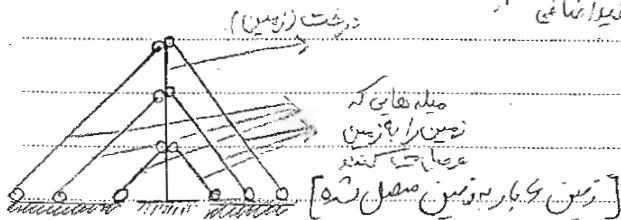 درخت (زمین)
میله هایی که
زمین را به زمین
متصل می کنند
[زمین ۶ بار به زمین متصل شده]